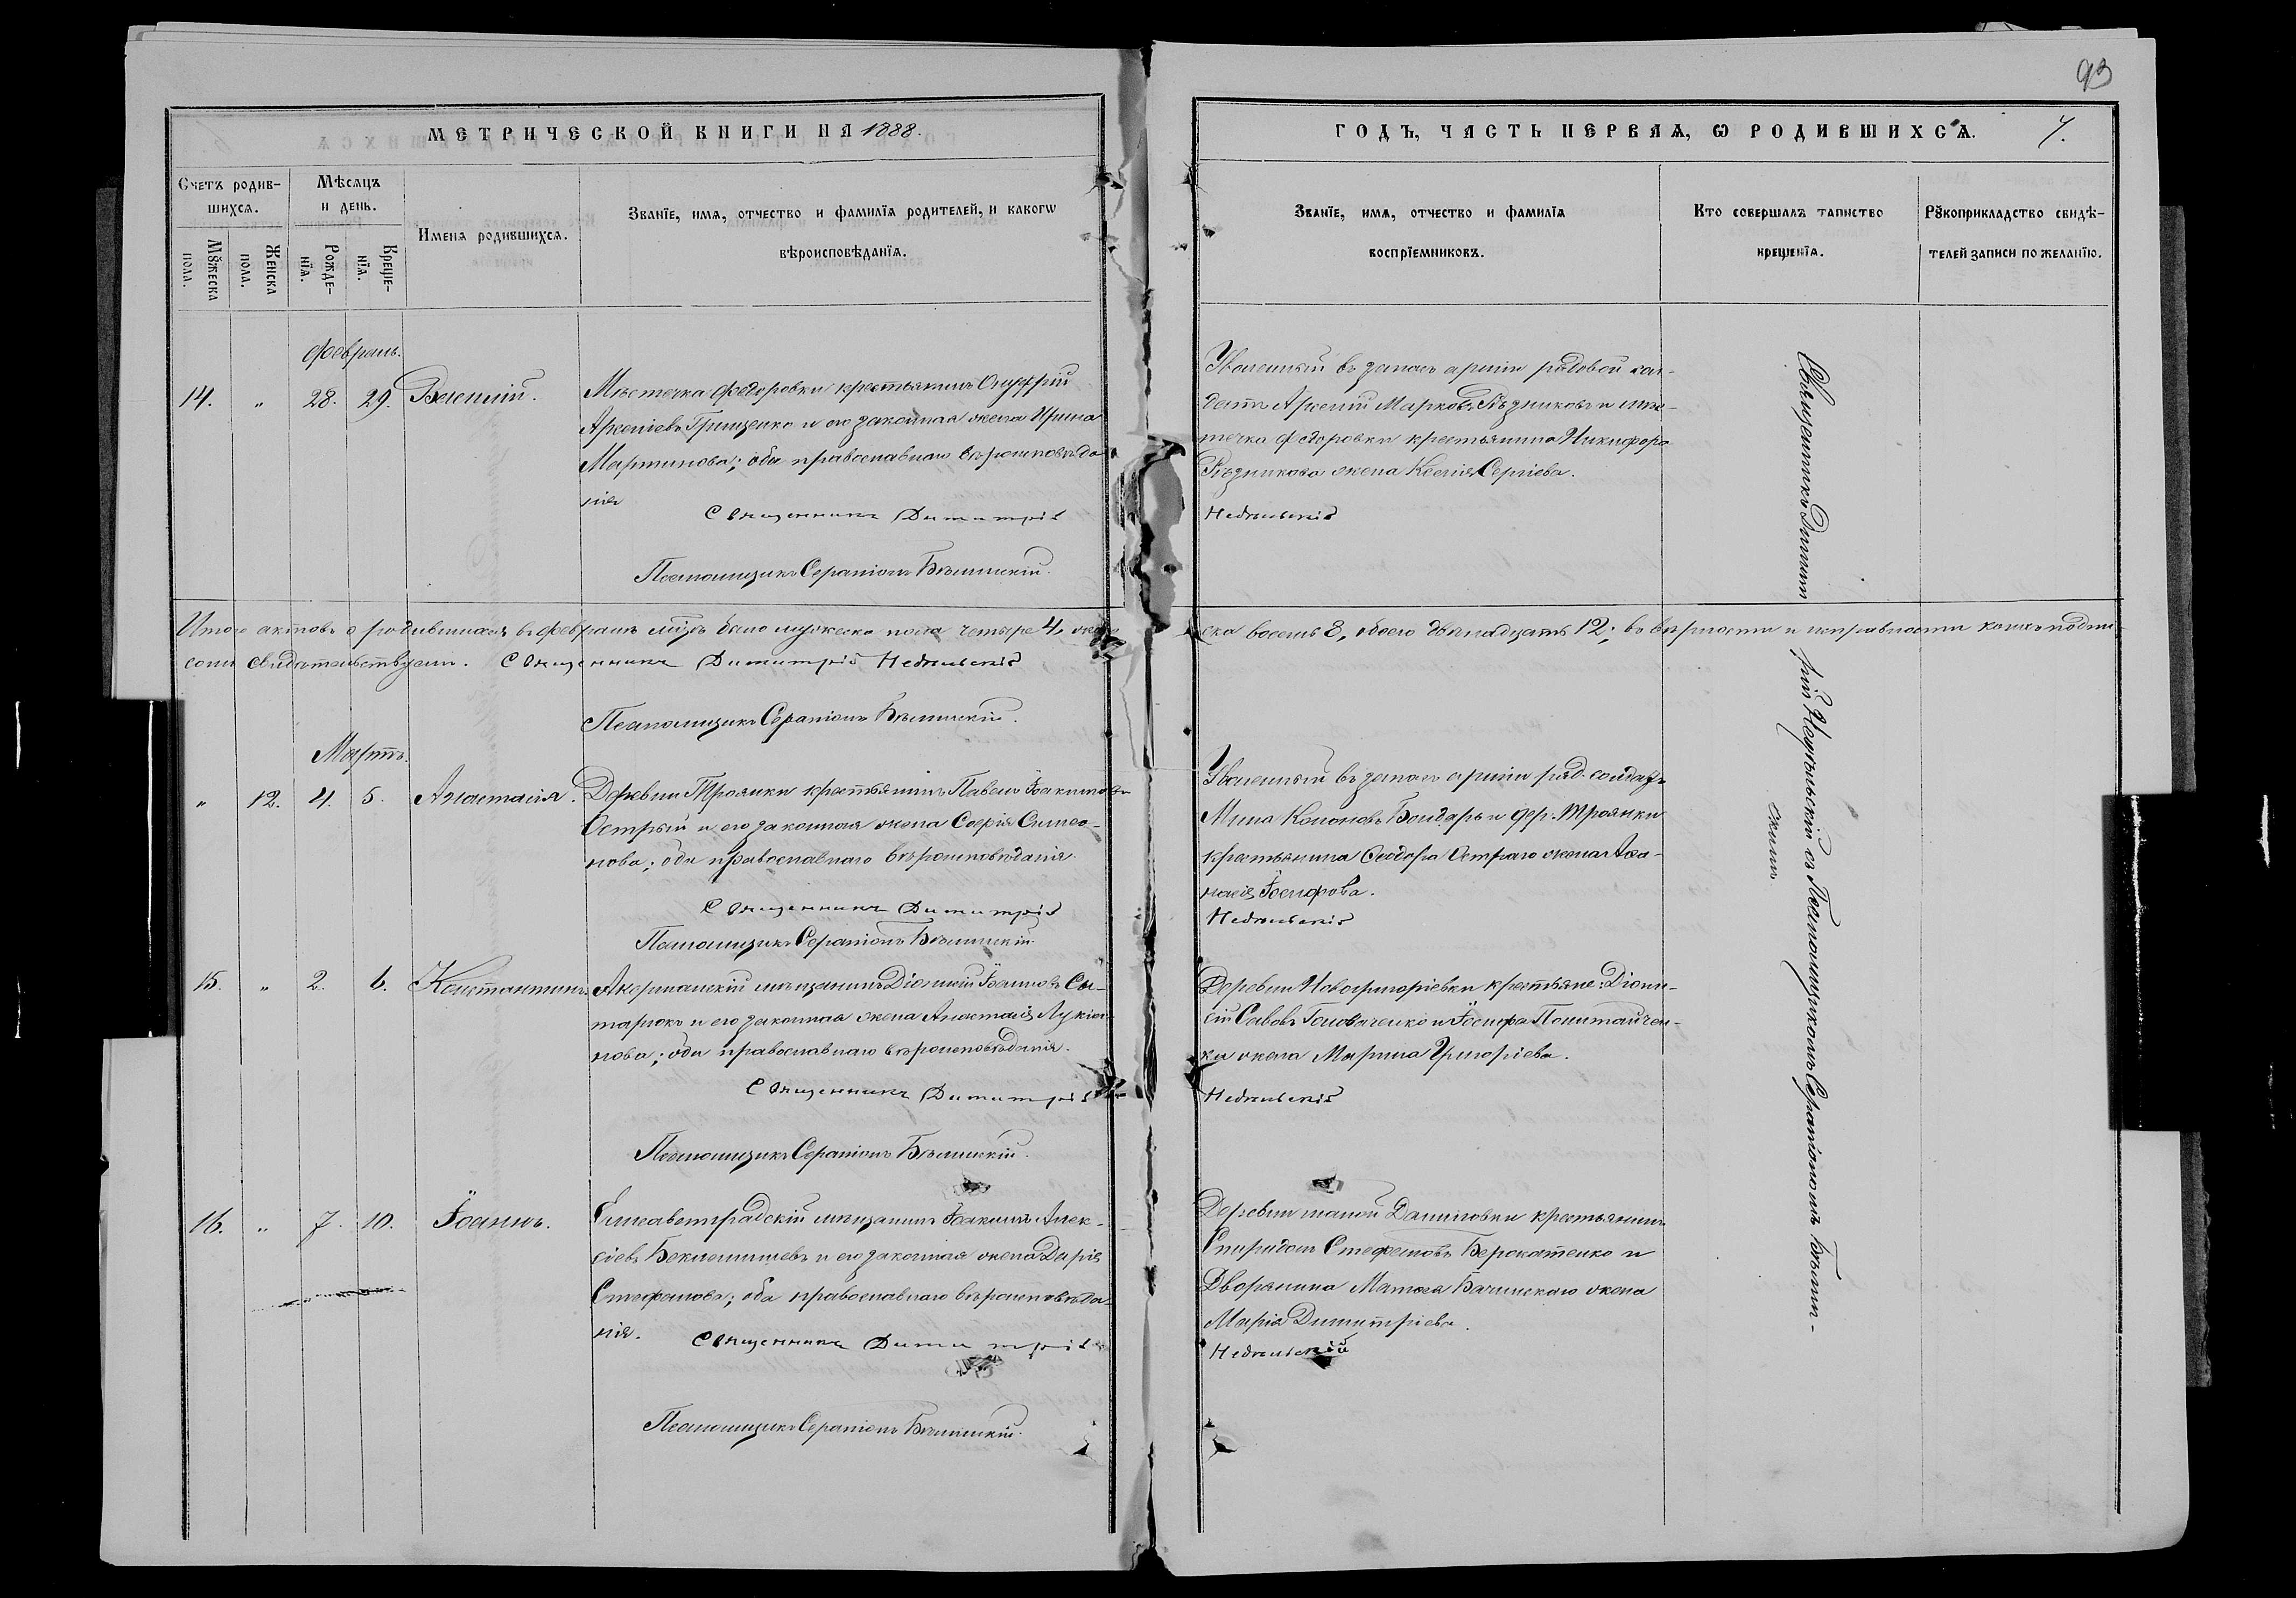 93
МЕТРИЧЕСКОЙ КНИГИ НА 1888.
ГОДЪ, ЧАСТЬ ПЕРВАЯ, Ѡ РОДИВШИХСѦ. 7.
Счетъ родив-
шихсѧ.
Мѣсѧцъ
и день.
Имена родившихсѧ.
Званїе, имѧ, отчество и фамилїѧ родителей, и какогѡ
вѣроисповѣданїѧ.
Мꙋжеска
пола.
Женска
пола.
Рожде-
нїѧ.
Креще-
нїѧ.
Званїе, имѧ, отчество и фамилїѧ
воспрїемниковъ.
Кто совершалъ таинство
крещенїѧ.
Рꙋкоприкладство свидѣ-
телей записи по желанїю.
Февраль.
14. " 28. 29.
Мѣстечка Федоровки крестьянинъ Онуфрій
Арсеніевъ Грищенко и его законная жена Ирина
Мартинова; оба православнаго вѣроисповѣда-
нія
Священникъ Димитрій
Псаломщикъ Серапіонъ Бѣлинскій.
Уволенный въ запасъ арміи рядовой сол-
датъ Арсеній Марковъ Рѣзниковъ и мѣс-
течка Федоровки крестьянина Никифора
Рѣзникова жена Ксенія Сергіева.
Недѣльскій
Итого актовъ о родившихся въ февралѣ мцѣ было мужеска пола четыре 4, жен-
ска восемь 8, обоего двѣнадцать 12; въ вѣрности и исправности коихъ подпи-
сомъ свидѣтельствуемъ. Священникъ Димитрій Недѣльскій
Псаломщикъ Серапіонъ Бѣлинскій.
Мартъ.
" 12. 4. 5. Анастасія.
Деревни Троянки крестьянинъ Павелъ Іоакимовъ
Острый и его законная жена Софія Симео-
нова; оба православнаго вѣроисповѣданія.
Священникъ Димитрій
Псаломщикъ Серапіонъ Бѣлинскій.
Уволенный въ запасъ арміи ряд. солдатъ
Мина Кононовъ Бондарь и дер. Троянки
крестьянина Ѳеодора Остраго жена Аѳа-
насія Іосифова.
Недѣльскій
15. " 2. 6. Константинъ.
Акерманскій мѣщанинъ Діонисій Іоанновъ
и его законная жена Анастасія Лукіа-
нова; оба православнаго вѣроисповѣданія.
Священникъ Димитрій
Псаломщикъ Серапіонъ Бѣлинскій.
Деревни Новогригоріевки крестьяне: Діони-
сій Савовъ Головаченко и Іосифа
жена Марина Григоріева.
Недѣльскій
16. " 7. 10. Іоаннъ.
Елисаветградскій мѣщанинъ Іоакимъ Алек-
сіевъ Беклемишевъ и его законная жена Дарія
Стефанова; оба православнаго вѣроисповѣда-
нія.
Священникъ Димитрій
Псаломщикъ Серапіонъ Бѣлинскій.
Деревни малой Даниловки крестьянинъ
Спиридонъ Стефановъ и
Дворянина Матѳея Бачинскаго жена
Марія Димитріева.
Недѣльскій
Священникъ Димит-
рій Недѣльскій съ Псаломщикомъ Серапіономъ Бѣлин-
скимъ